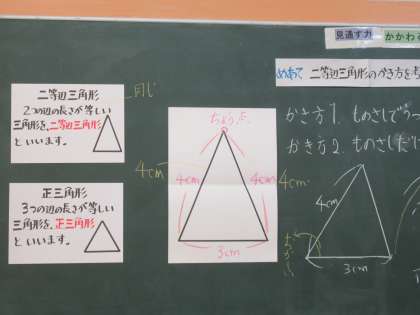 見通す力
かかわ
めあて 二等辺三角形のかき方を考
二等辺三角形
2つの辺の長さが等しい
三角形を、二等辺三角形
といいます。
同じ
正三角形
3つの辺の長さが等しい
三角形を、正三角形
といいます。
ちょう点
4cm
4cm
4cm
4cm
3cm
かき方1. ものさしで
かき方2. ものさしだけ
4cm
3cm